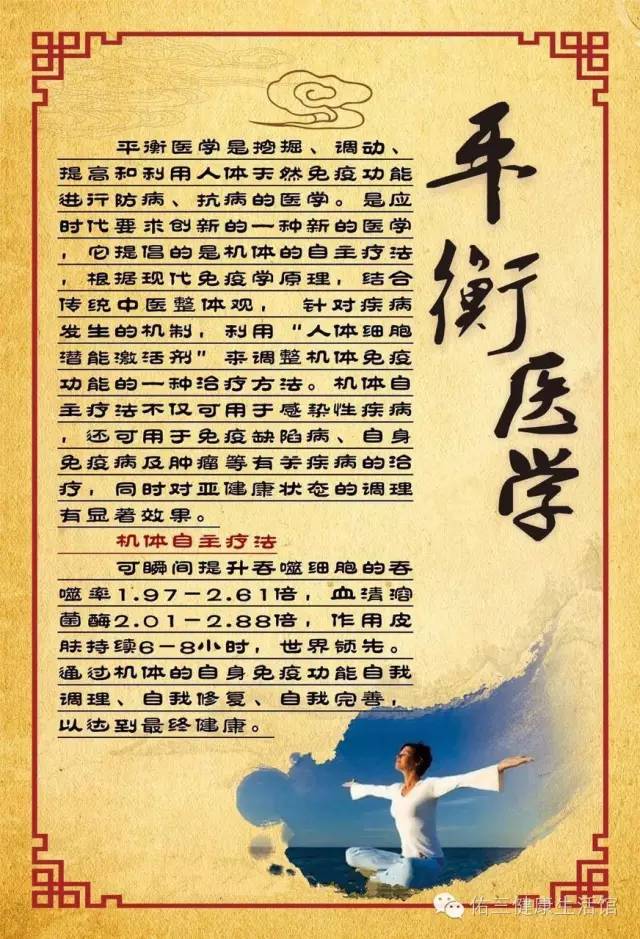 平衡医学
平衡医学是挖掘、调动、
提高和利用人体天然免疫功能
进行防病、抗病的医学。是应
时代要求创新的一种新的医学
，它提倡的是机体的自主疗法
，根据现代免疫学原理，结合
传统中医整体观， 针对疾病
发生的机制，利用“人体细胞
潜能激活剂”来调整机体免疫
功能的一种治疗方法。机体自
主疗法不仅可用于感染性疾病
，还可用于免疫缺陷病、自身
免疫病及肿瘤等有关疾病的治
疗，同时对亚健康状态的调理
有显著效果。
机体自主疗法
可瞬间提升吞噬细胞的吞
噬率1.97-2.61倍，血清溶
菌酶2.01-2.88倍，作用皮
肤持续6-8小时，世界领先。
通过机体的自身免疫功能自我
调理、自我修复、自我完善，
以达到最终健康。
佑三健康生活馆